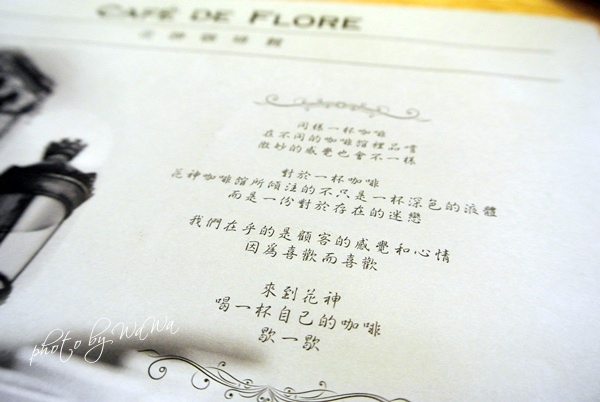 CAFÉ DE FLORE
花神咖啡館
同樣一杯咖啡
在不同的咖啡館裡品嚐
微妙的感覺也會不一樣
對於一杯咖啡
花神咖啡館所傾注的不只是一杯深色的液體
而是一份對於存在的迷戀
我們在乎的是顧客的感覺和心情
因為喜歡而喜歡
來到花神
喝一杯自己的咖啡
歇一歇
photo by WaWa